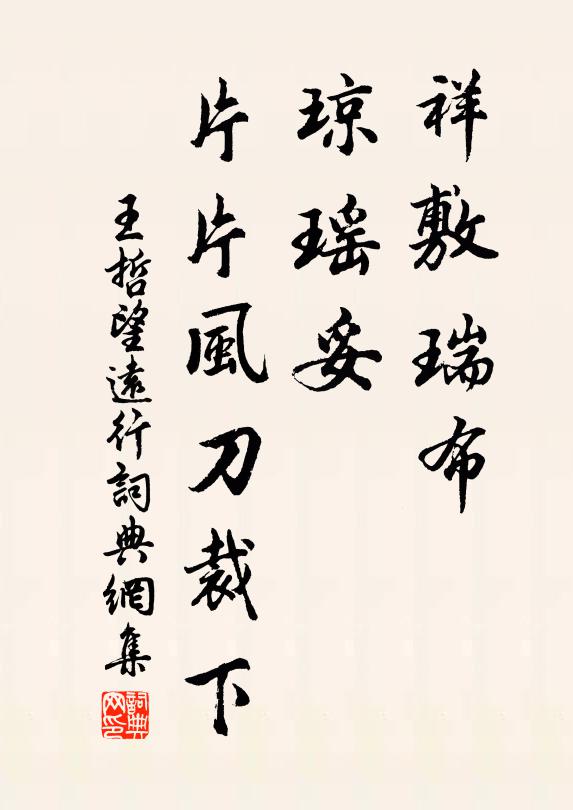 祥敷瑞布
琼瑶妥
片片風刀裁下
王哲望遠行詞典網集
詞典网印